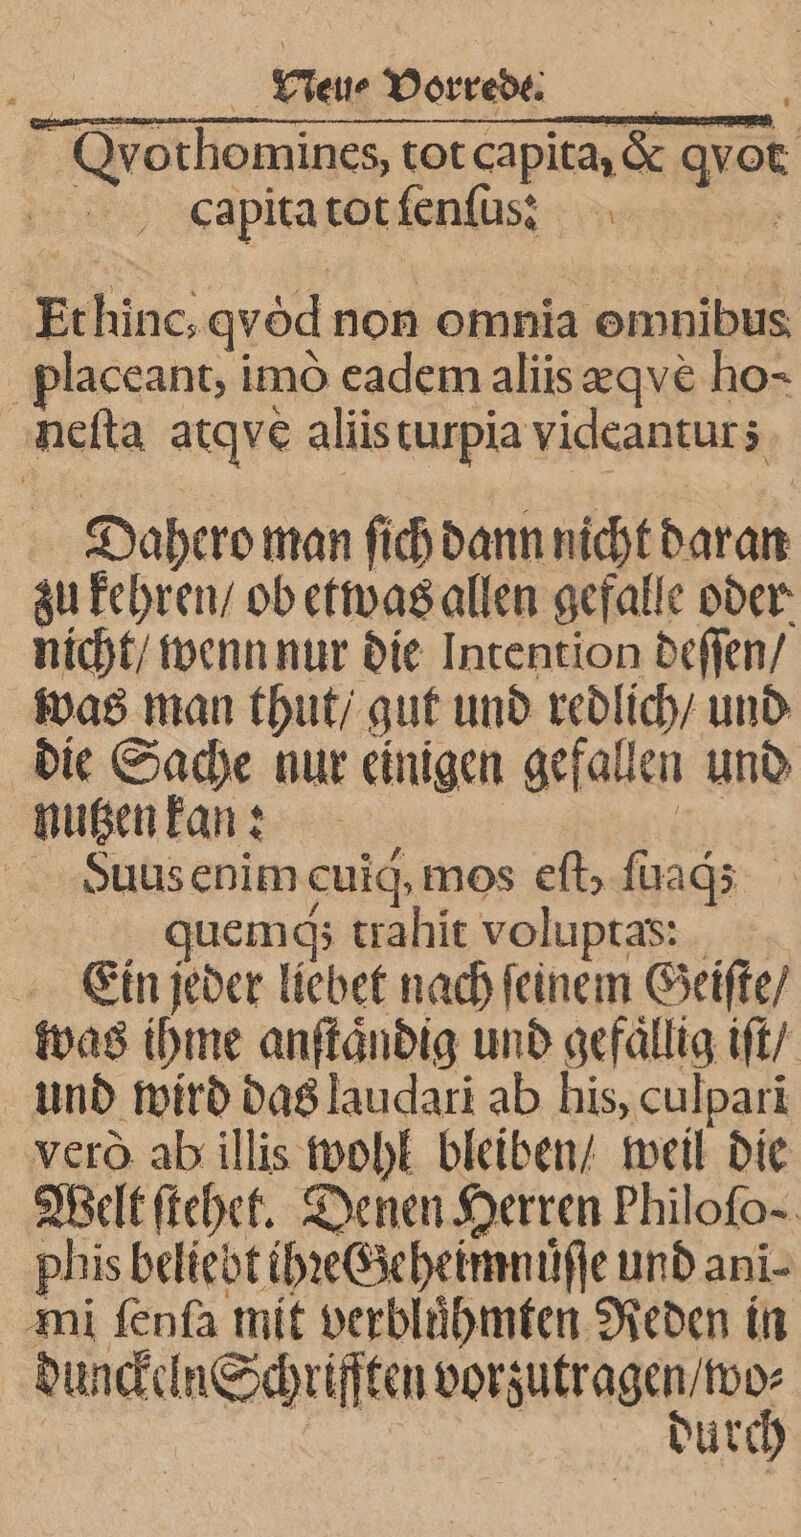 Neue Vorrede.
Qvothomines, tot capita, & qvot
capita tot ſenſus:
Et hinc, qvòd non omnia omnibus
placeant, imò eadem aliis æqvè ho-
neſta atqvè aliis turpia videantur;
Dahero man ſich dann nicht daran
zu kehren/ ob etwas allen gefalle oder
nicht/ wenn nur die Intention deſſen/
was man thut/ gut und redlich/ und
die Sache nur einigen gefallen und
nutzen kan:
Suus enim cuiq́, mos eſt, ſuaq́;
quemq́; trahit voluptas:
Ein jeder liebet nach ſeinem Geiſte/
was ihme anſtaͤndig und gefaͤllig iſt/
und wird das laudari ab his, culpari
verò ab illis wohl bleiben/ weil die
Welt ſtehet. Denen Herren Philoſo-
phis beliebt ihꝛe Geheimnuͤſſe und ani-
mi ſenſa mit verbluͤhmten Reden in
dunckeln Schrifften vorzutragen/wo⸗
durch